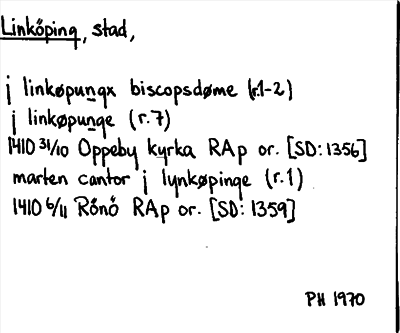 Linköping, stad,
j linkøpungx biscopsdøme (r.1-2)
j linkøpunge (r.7)
1410 31/10 Oppeby kyrka RAp or. [SD: 1356]
marten cantor j lynkøpinge (r.1)
1410 6/11 Rönö RAp or. [SD: 1359]
PH 1970